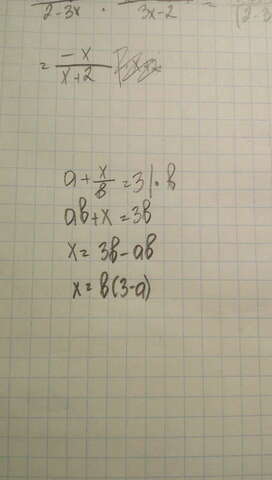 2-3x · 3x-2 =
= -x / x+2
a + x/b = 3 | · b
ab + x = 3b
x = 3b - ab
x = b(3-a)